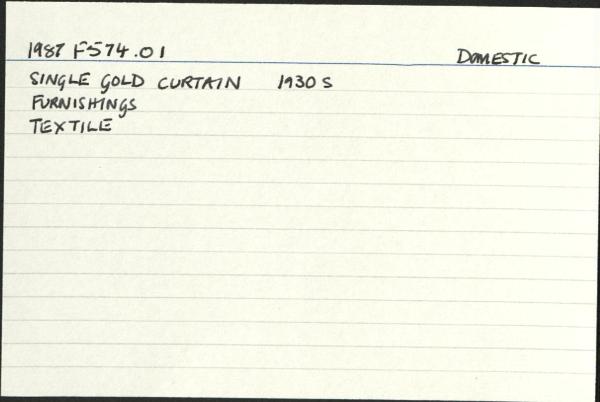 1987 F574.01 DOMESTIC
SINGLE GOLD CURTAIN 1930S
FURNISHINGS
TEXTILE